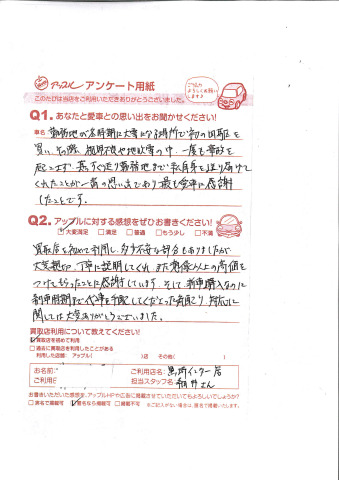 アップル アンケート用紙
ご協力
よろしくお願い
します♪
このたびは当店をご利用いただきありがとうございました。
Q1.あなたと愛車との思い出をお聞かせください!
車名
勤務地が冬時期に大雪になる場所で初の四駆を
買い、その際、視界不良や地吹雪の中、一度も事故を
起こさず、長らく走り勤務地まで私自身を送り届けて
くれたことが一番の思い出であり最も愛車に感謝
したことです。
Q2.アップルに対する感想をぜひお書きください!
大変満足 満足 普通 もう少し 不満
買取店を初めて利用し、多少不安な部分もありましたが
大変親切、丁寧に説明してくれ、また想像以上の高値を
つけてもらったことに感謝しています。そして、新車購入なのに
利用期間まで代車を手配してくださった
関しては大変ありがとうございました。
買取店利用について教えてください!
買取店を初めて利用
過去に買取店を利用したことがある
利用した店舗: アップル( )店 その他( )
お名前:
ご利用日
ご利用店名:黒埼インター店
担当スタッフ名: さん
お書きいただいた感想を、アップルHPや広告に掲載させていただいてもよろしいでしょうか?
実名で掲載可 匿名なら掲載可 掲載不可 ※ご記入がない場合は、匿名で掲載いたします。